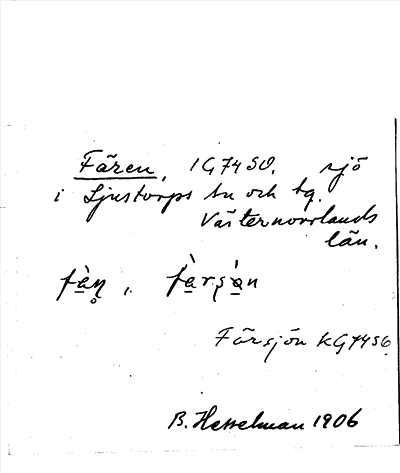 Fären, IG74SO. sjö
i Ljustorps sn och tg.
Västernorrlands
län.
fä̀n̥, fä̀rşä̀n
Färsjön KG74S6
B. Hesselman 1906